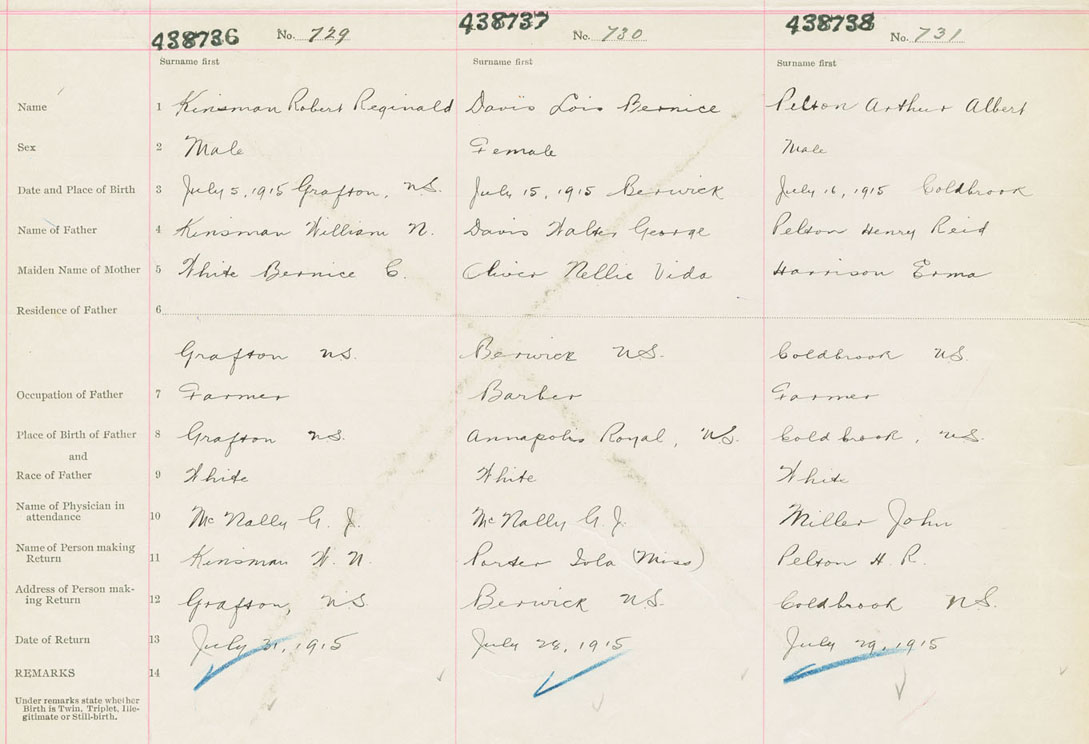 438736 No. 729 438737 No. 730 438738 No. 731
Surname first Surname first Surname first
Name 1 Kinsman Robert Reginald Davis Lois Bernice Pelton Arthur Albert
Sex 2 Male Female Male
Date and Place of Birth 3 July 5, 1915 Grafton, NS. July 15, 1915 Berwick July 16, 1915 Coldbrook
Name of Father 4 Kinsman William N. Davis Walter George Pelton Henry Reid
Maiden Name of Mother 5 White Bernice C. Oliver Nellie Vida Harrison Erma
Residence of Father 6
Grafton NS. Berwick NS. Coldbrook NS.
Occupation of Father 7 Farmer Barber Farmer
Place of Birth of Father 8 Grafton NS. Annapolis Royal, NS. Coldbrook, NS.
and
Race of Father 9 White White White
Name of Physician in
attendance 10 McNally G. J. McNally G. J. Miller John
Name of Person making
Return 11 Kinsman W. N. Porter Iola (Miss) Pelton H. R.
Address of Person mak-
ing Return 12 Grafton, NS. Berwick NS. Coldbrook NS.
Date of Return 13 July 31, 1915 July 28, 1915 July 29, 1915
REMARKS 14
Under remarks state whether
Birth is Twin, Triplet, Ille-
gitimate or Still-birth.